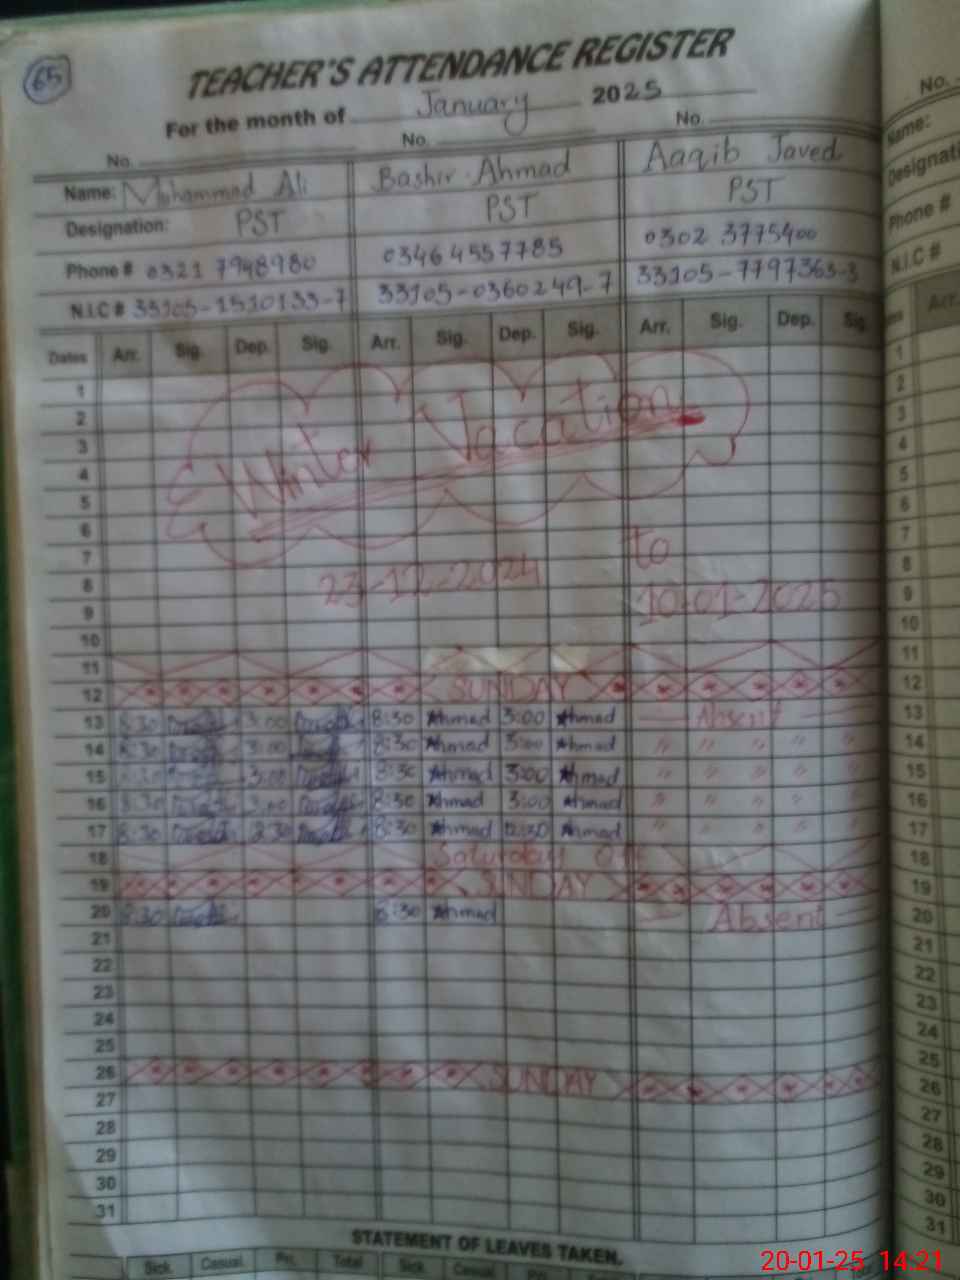 65
TEACHER'S ATTENDANCE REGISTER
For the month of January 2025
No. No. No.
Name: Muhammad Ali Bashir Ahmad Aaqib Javed
Designation: PST PST PST
Phone # 0321 7948980 0346 4557785 0302 3775400
N.I.C # 33105-1510133-7 33105-0360249-7 33105-7797363-3
Dates Arr. Sig. Dep. Sig. Arr. Sig. Dep. Sig. Arr. Sig. Dep. Sig.
1
2
3
4
5
6
7
8
9
10
Winter Vacation
23-12-2024 to 10-01-2025
11
12 SUNDAY
13 8:30 3:00 8:30 Ahmad 3:00 Ahmad Absent
14 8:30 3:00 8:30 Ahmad 3:00 Ahmad " " " " "
15 8:30 3:00 8:30 Ahmad 3:00 Ahmad " " " " "
16 8:30 3:00 8:30 Ahmad 3:00 Ahmad " " " " "
17 8:30 8:30 Ahmad 12:30 Ahmad " " " " "
18 Saturday Off
19 SUNDAY
20 8:30 8:30 Ahmad Absent
21
22
23
24
25
26 SUNDAY
27
28
29
30
31
STATEMENT OF LEAVES TAKEN.
Sick. Casual. Pri. Total Sick. Casual
No.
Name:
Designati
Phone #
N.I.C #
Arr.
1
2
3
4
5
6
7
8
9
10
11
12
13
14
15
16
17
18
19
20
21
22
23
24
25
26
27
28
29
30
31
20-01-25 14:21